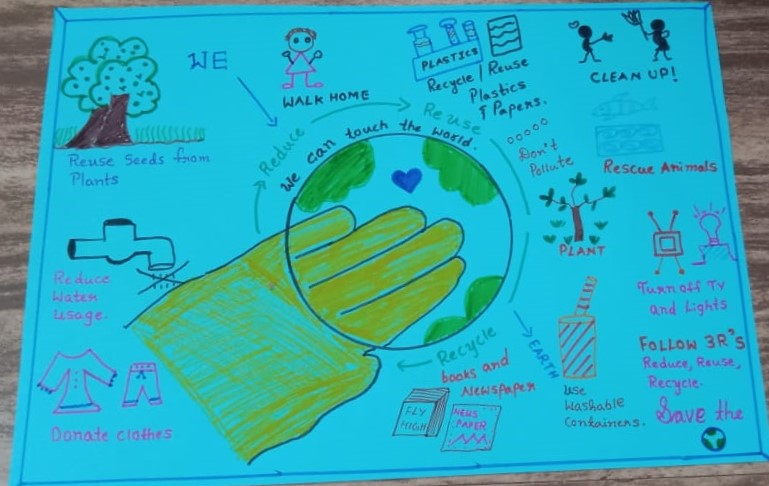 WE
WALK HOME
PLASTICS
Recycle / Reuse
Plastics
& Papers.
CLEAN UP!
Reuse Seeds from
Plants
Reduce
Reuse
we can touch the world.
Don't
Pollute
Rescue Animals
PLANT
Reduce
Water
usage.
Turn off TV
and Lights
Donate clothes
Recycle
EARTH
books and
Newspaper
FLY
HIGH
NEWS
PAPER
Use
Washable
Containers.
FOLLOW 3R'S
Reduce, Reuse,
Recycle.
Save the